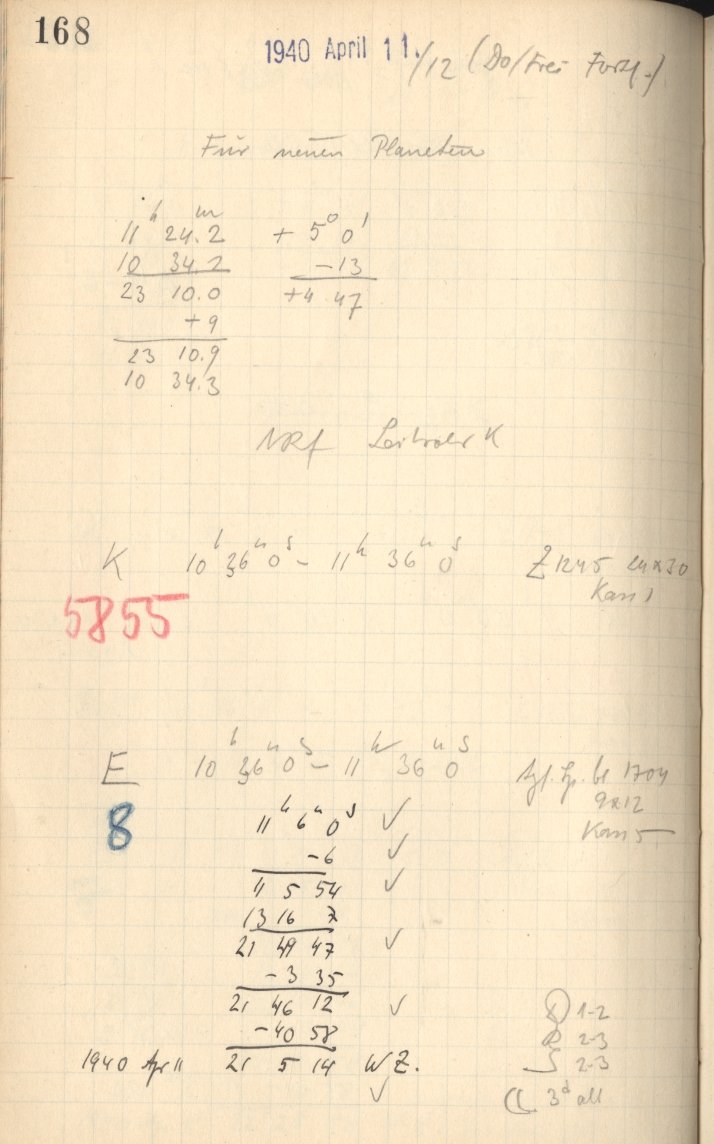 168
1940 April 11./12 (Do/Frei Forts.)
Für neuen Planeten
11 h 24.2 m + 5° 0'
10 34.2 -13
23 10.0 +4 47
+9
23 10.9
10 34.3
NRf K
K 10 h 36 m 0 s - 11 h 36 m 0 s Z 1245 24x30
5855 Kass 1
E 10 h 36 m 0 s - 11 h 36 m 0 s 1704
9x12
8 11 h 6 m 0 s ✓ Kass 5
-6 ✓
11 5 54 ✓
13 16 7
21 49 47 ✓
-3 35
21 46 12 ✓ D 1-2
-40 58 R 2-3
1940 Apr 11 21 5 14 WZ. S 2-3
✓ ☾ 3 d alt